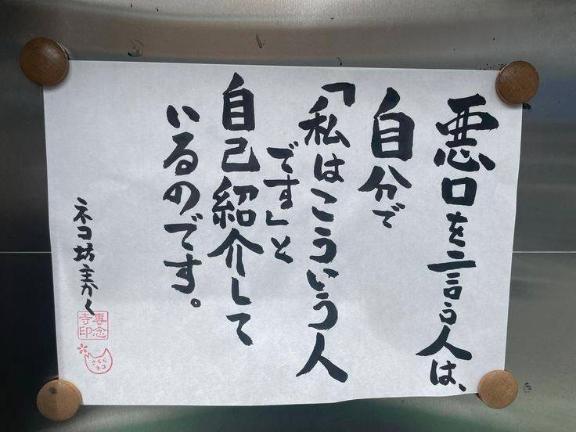 悪口を言う人は、
自分で
「私はこういう人
です」と
自己紹介して
いるのです。
ネコ坊主かく
専念
寺印